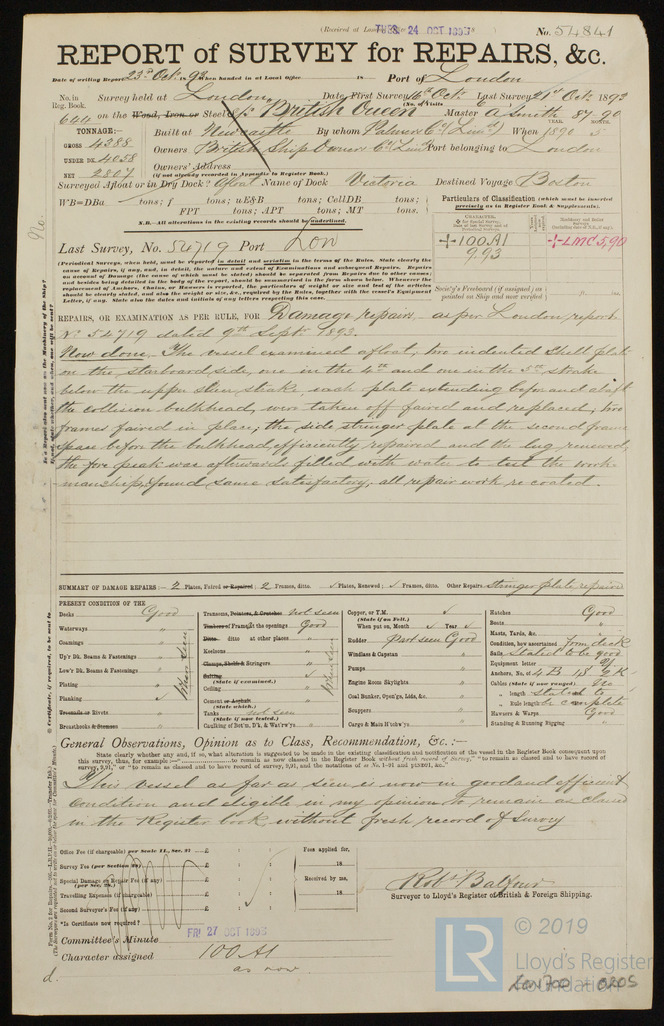 (Received at London Office TUES. 24 OCT 1893) No. 54841
REPORT of SURVEY for REPAIRS, &c.
Date of writing Report 23rd Oct. 1893 When handed in at Local Office 18 Port of London
No. in Reg. Book. Survey held at London, Date, First Survey 16th Oct. Last Survey 21st Oct. 1893
(No. of Visits 6)
644 on the Wood, Iron or Steel British Queen Master A. Smith
TONNAGE:— Built at Newcastle By whom Palmer Co. (Limd) When 1890 5
YEAR. MONTH.
GROSS 4388
UNDER DK. 4058
NET 2807
Owners British Ship Owners Co. Limd Port belonging to London
Owners' Address
(If not already recorded in Appendix to Register Book.)
Surveyed Afloat or in Dry Dock? Afloat Name of Dock Victoria Destined Voyage Boston
WB=DBa tons; f tons; uE&B tons; CellDB tons;
FPT tons; APT tons; MT tons.
N.B.—All alterations in the existing records should be underlined.
Particulars of Classification (which must be inserted precisely as in Register Book & Supplements).
CHARACTER.
+100A1
9,93
+LMC 5,90
Last Survey, No. 54719 Port Lon
(Periodical Surveys, when held, must be reported in detail and seriatim in the terms of the Rules. State clearly the
cause of Repairs, if any, and, in detail, the nature and extent of Examinations and subsequent Repairs. Repairs
on account of Damage (the cause of which must be stated) should be separated from Repairs due to other causes;
and besides being detailed in the body of the report, should be summarised in the form below. Whenever
replacement of Anchors, Chains, or Hawsers is reported, the particulars of weight or size and test of the articles
should be clearly stated, and also the weight or size, &c., required by the Rules, together with the vessel's Equipment
Letter, if any. State also the dates and initials of any letters respecting this case.
Society's Freeboard (if assigned) as painted on Ship and now verified
REPAIRS, OR EXAMINATION AS PER RULE, FOR Damage repairs,- as per London report
No. 54719 dated 9th Sept. 1893.
Now done. The vessel examined afloat, two indented shell plates
on the starboard side, one in the 4th and one in the 5th strake
below the upper sheer strake, each plate extending before and abaft
the collision bulkhead, were taken off faired and replaced, two
frames faired in place; the side stringer plate at the second frame
space before the bulkhead efficiently repaired and the lug renewed,
the fore peak was afterwards filled with water to test the work-
manship, & found same satisfactory; all repair work re coated.
SUMMARY OF DAMAGE REPAIRS:— 2 Plates, Faired or Repaired; 2 Frames, ditto. Plates, Renewed; Frames, ditto. Other Repairs. stringer plate, repaired
PRESENT CONDITION OF THE
Decks Good
Waterways "
Coamings "
Up'r Dk. Beams & Fastenings
Low'r Dk. Beams & Fastenings
Plating
Planking
Treenails or Rivets
Breasthooks & Stemson
Where seen
Transoms, Pointers, & Crutches Not seen
Timbers of Frame at the openings Good
Ditto ditto at other places "
Keelsons "
Clamps, Shelfs & Stringers
Salting
(State if examined.)
Ceiling
Cement or Asphalt
(State which.)
Tanks Not seen
(State if now tested.)
Caulking of Bot'm, D'k, & Wat'rw'ys
Where seen
Copper, or Y.M.
(State if on Felt.)
When put on, Month Year
Rudder part seen Good
Windlass & Capstan "
Pumps "
Engine Room Skylights "
Coal Bunker, Open'gs, Lids, &c. "
Scuppers "
Cargo & Main H'tchw'ys "
Hatches Good
Boats "
Masts, Yards, &c. "
Condition, how ascertained from deck
Sails Stated to be good
Equipment letter
Anchors, No. of 4B 1S 2K
Cables (State if now ranged) No
" length stated to
" Rule length be complete
Hawsers & Warps Good
Standing & Running Rigging "
General Observations, Opinion as to Class, Recommendation, &c.:—
State clearly whether any, and if so, what alteration is suggested to be made in the existing classification and notification of the vessel in the Register Book consequent upon
This vessel as far as seen is now in good and efficient
condition and eligible in my opinion to remain as classed
in the Register book, without fresh record of Survey
Office Fee (if chargeable) per Scale 11., Sec. 27 £ : :
Survey Fee (per Section 28) £ : :
Special Damage or Repair Fee (if any) £ : :
(per Sec. 28.)
Travelling Expenses (if chargeable) £ : :
Second Surveyor's Fee (if any) £ : :
*Is Certificate now required?
Fees applied for,
18
Received by me,
18
Robt Balfour
Surveyor to Lloyd's Register of British & Foreign Shipping.
Committee's Minute FRI 27 OCT 1893
Character assigned 100A1
as now
d.
© 2019
LR
Lloyd's Register
Foundation